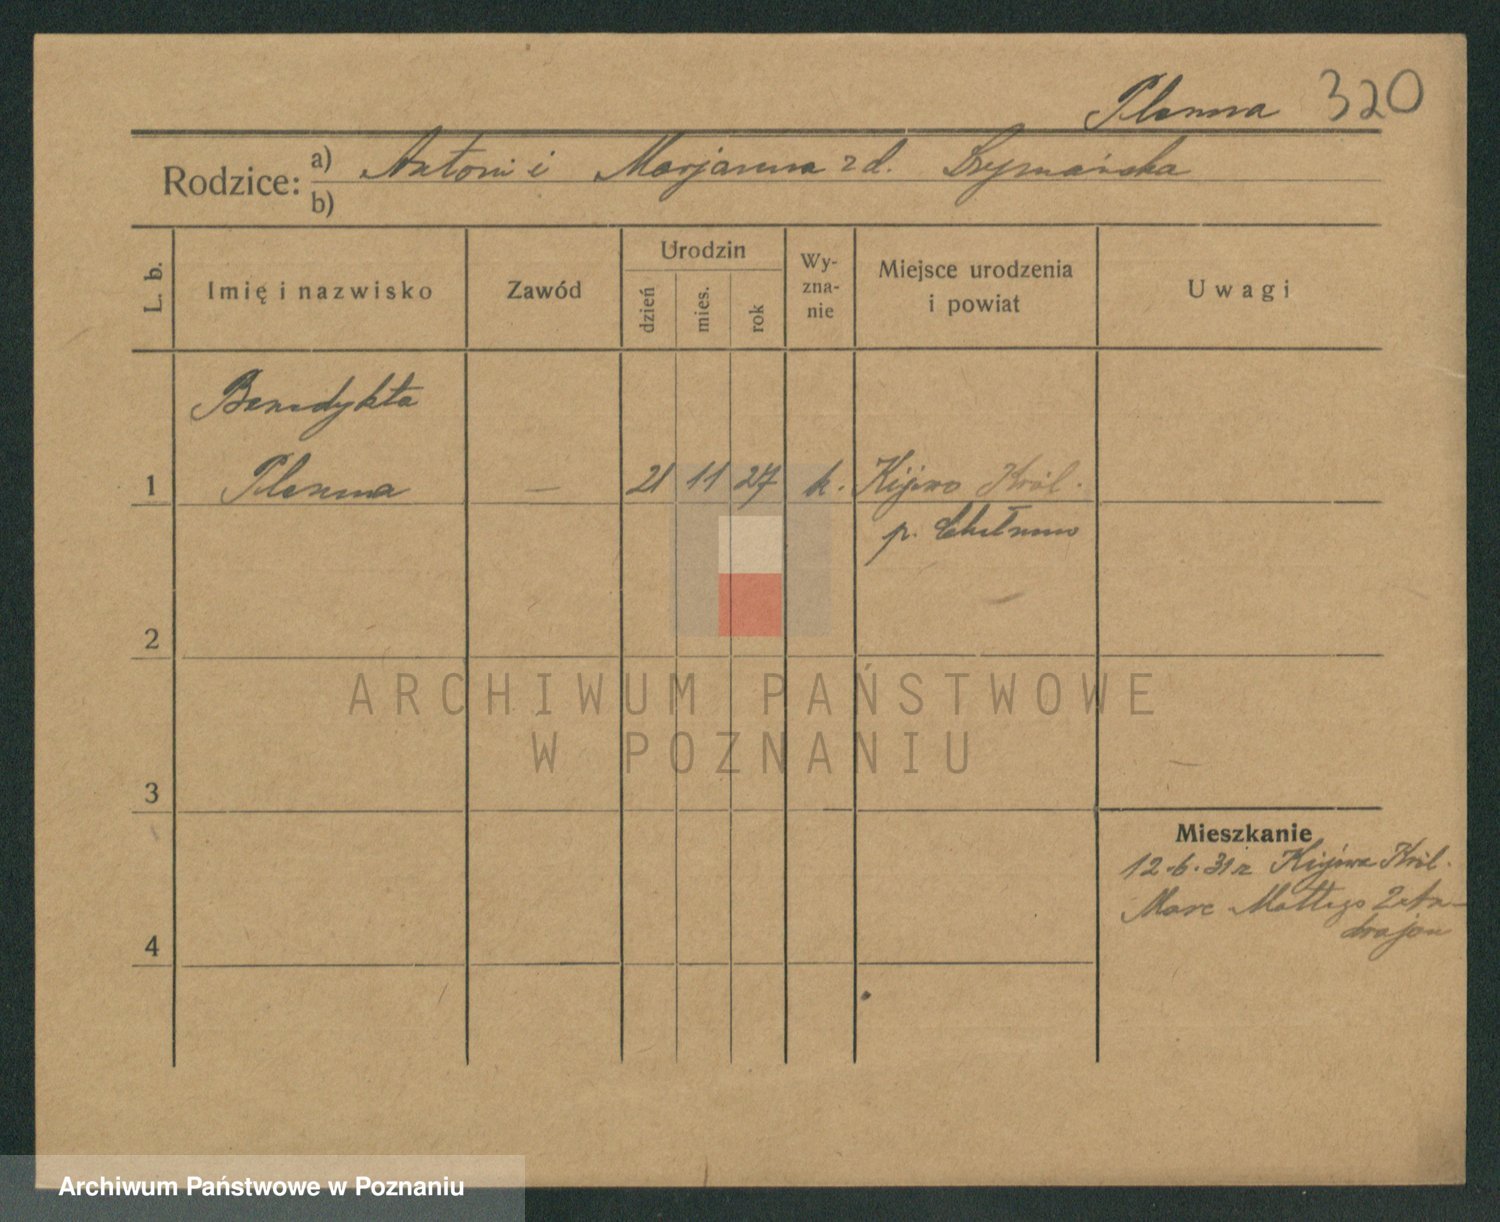 Plenna 320
Rodzice: a) Antoni i Marjanna z d. Szymańska
b)
L. b.
Imię i nazwisko
Zawód
Urodzin
dzień
mies.
rok
Wy-
zna-
nie
Miejsce urodzenia
i powiat
Uwagi
Benedykta
1 Plenna — 21 11 27 k. Kijewo Król.
p. Chełmno
2
3
4
Mieszkanie
12.6.31 r Kijewo Król.
ARCHIWUM PAŃSTWOWE
W POZNANIU
Archiwum Państwowe w Poznaniu